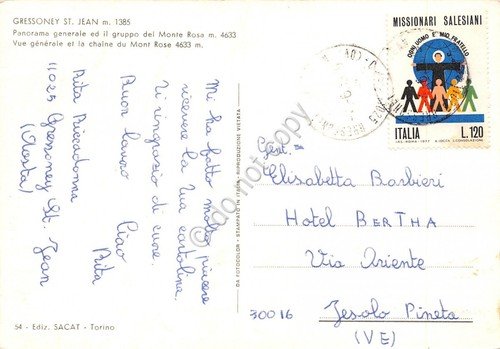 GRESSONEY ST. JEAN m. 1385
Panorama generale ed il gruppo del Monte Rosa m. 4633
Vue générale et la chaîne du Mont Rose 4633 m.
Mi ha fatto molto piacere
ricevere la tua cartolina.
Ti ringrazio di cuore.
Buon lavoro
Ciao
Rita
Rita Piccadonna
11025 Gressoney St. Jean
(Aosta)
54 - Ediz. SACAT - Torino
DA FOTOCOLOR - STAMPATO IN ITALIA - RIPRODUZIONE VIETATA
MISSIONARI SALESIANI
OGNI UOMO È MIO FRATELLO
ITALIA L.120
Gent.
Elisabetta Barbieri
Hotel BERTHA
Via Oriente
30016 Jesolo Pineta
(VE)
do not copy